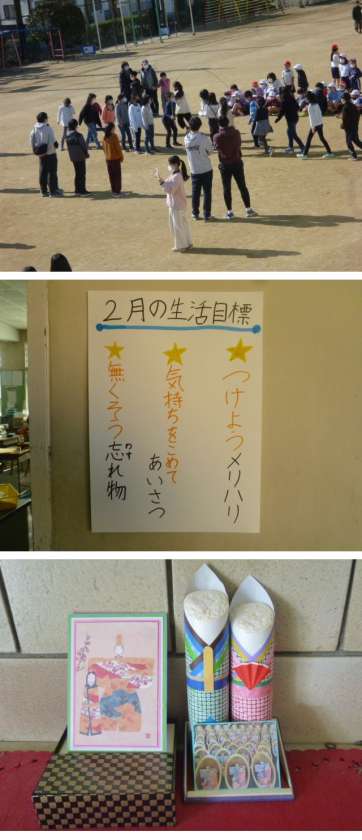 2月の生活目標
つけようメリハリ
気持ちをこめて
あいさつ
無くそう忘れ物
わす